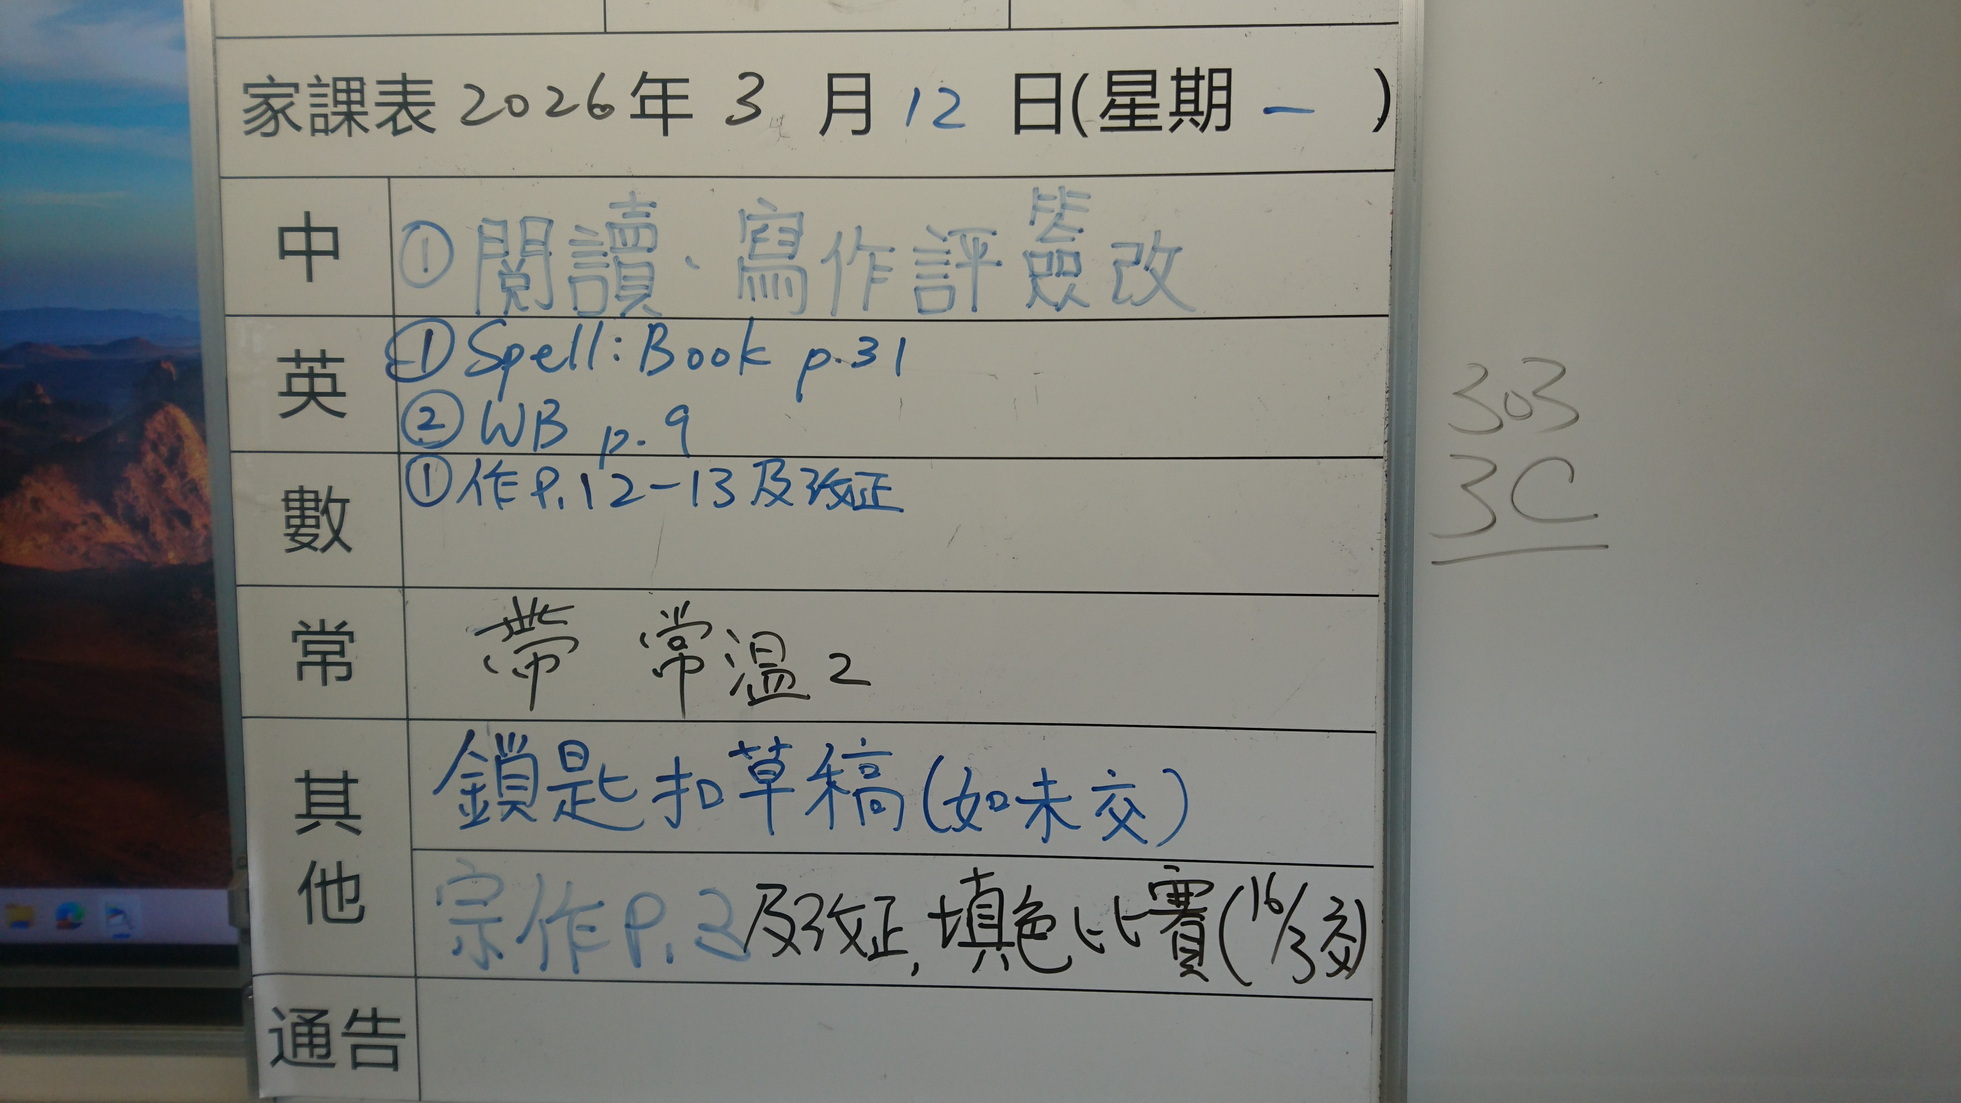 家課表 2026年 3 月 12 日(星期 一 )
中 ①閱讀、寫作評簽改
英 ①Spell: Book p.31
②WB p.9
數 ①作P.12-13及改正
常 帶 常溫2
其他 鎖匙扣草稿(如未交)
宗作P.2及改正, 填色比賽(16/3交)
通告
303
3C